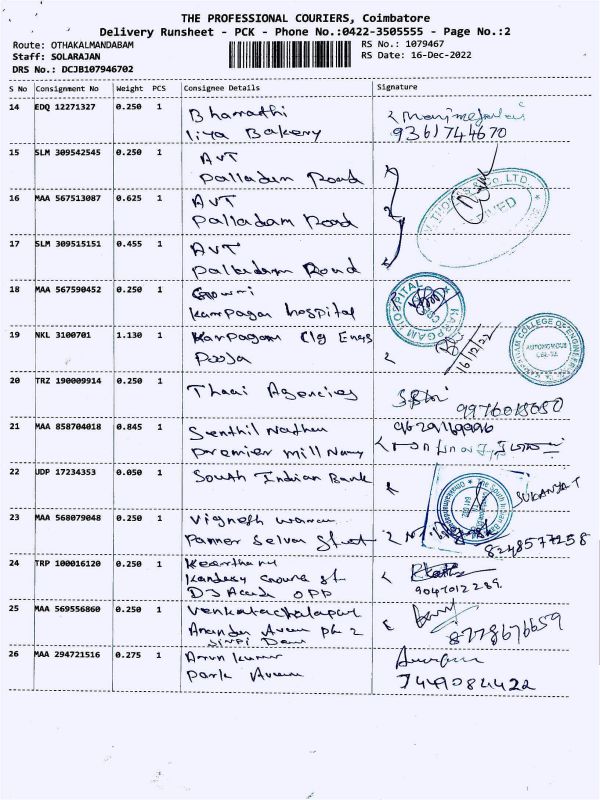 THE PROFESSIONAL COURIERS, Coimbatore
Delivery Runsheet - PCK - Phone No.:0422-3505555 - Page No.:2
Route: OTHAKALMANDABAM RS No.: 1079467
Staff: SOLARAJAN RS Date: 16-Dec-2022
DRS No.: DCJB107946702
S No Consignment No Weight PCS Consignee Details Signature
14 EDQ 12271327 0.250 1 Bharathi
Bakery 9361744670
15 SLM 309542545 0.250 1 AVT
Palladam Road
16 MAA 567513087 0.625 1 AVT
Palladam Road
17 SLM 309515151 0.455 1 AVT
Palladam Road
18 MAA 567590452 0.250 1 Gowri
Karpagam hospital
KARPAGAM HOSPITAL
19 NKL 3100701 1.130 1 Karpagam Clg Engg
Pooja 16/12/22
COLLEGE OF ENGINEERING
AUTONOMOUS
20 TRZ 190009914 0.250 1 Thaai Agencies
9976018650
21 MAA 858704018 0.845 1 Senthil Nathan
Premier mill
22 UDP 17234353 0.050 1 South Indian Bank
The South Indian Bank
SUKANYA T
23 MAA 568079048 0.250 1 Vignesh
Panner Selvam Street 8248577258
24 TRP 100016120 0.250 1 Keerthana
OPP 9047012289
25 MAA 569556860 0.250 1 Venkatachalapathy
Ph 2 8778676659
26 MAA 294721516 0.275 1 Arun Kumar
Park Avenue 7449084422